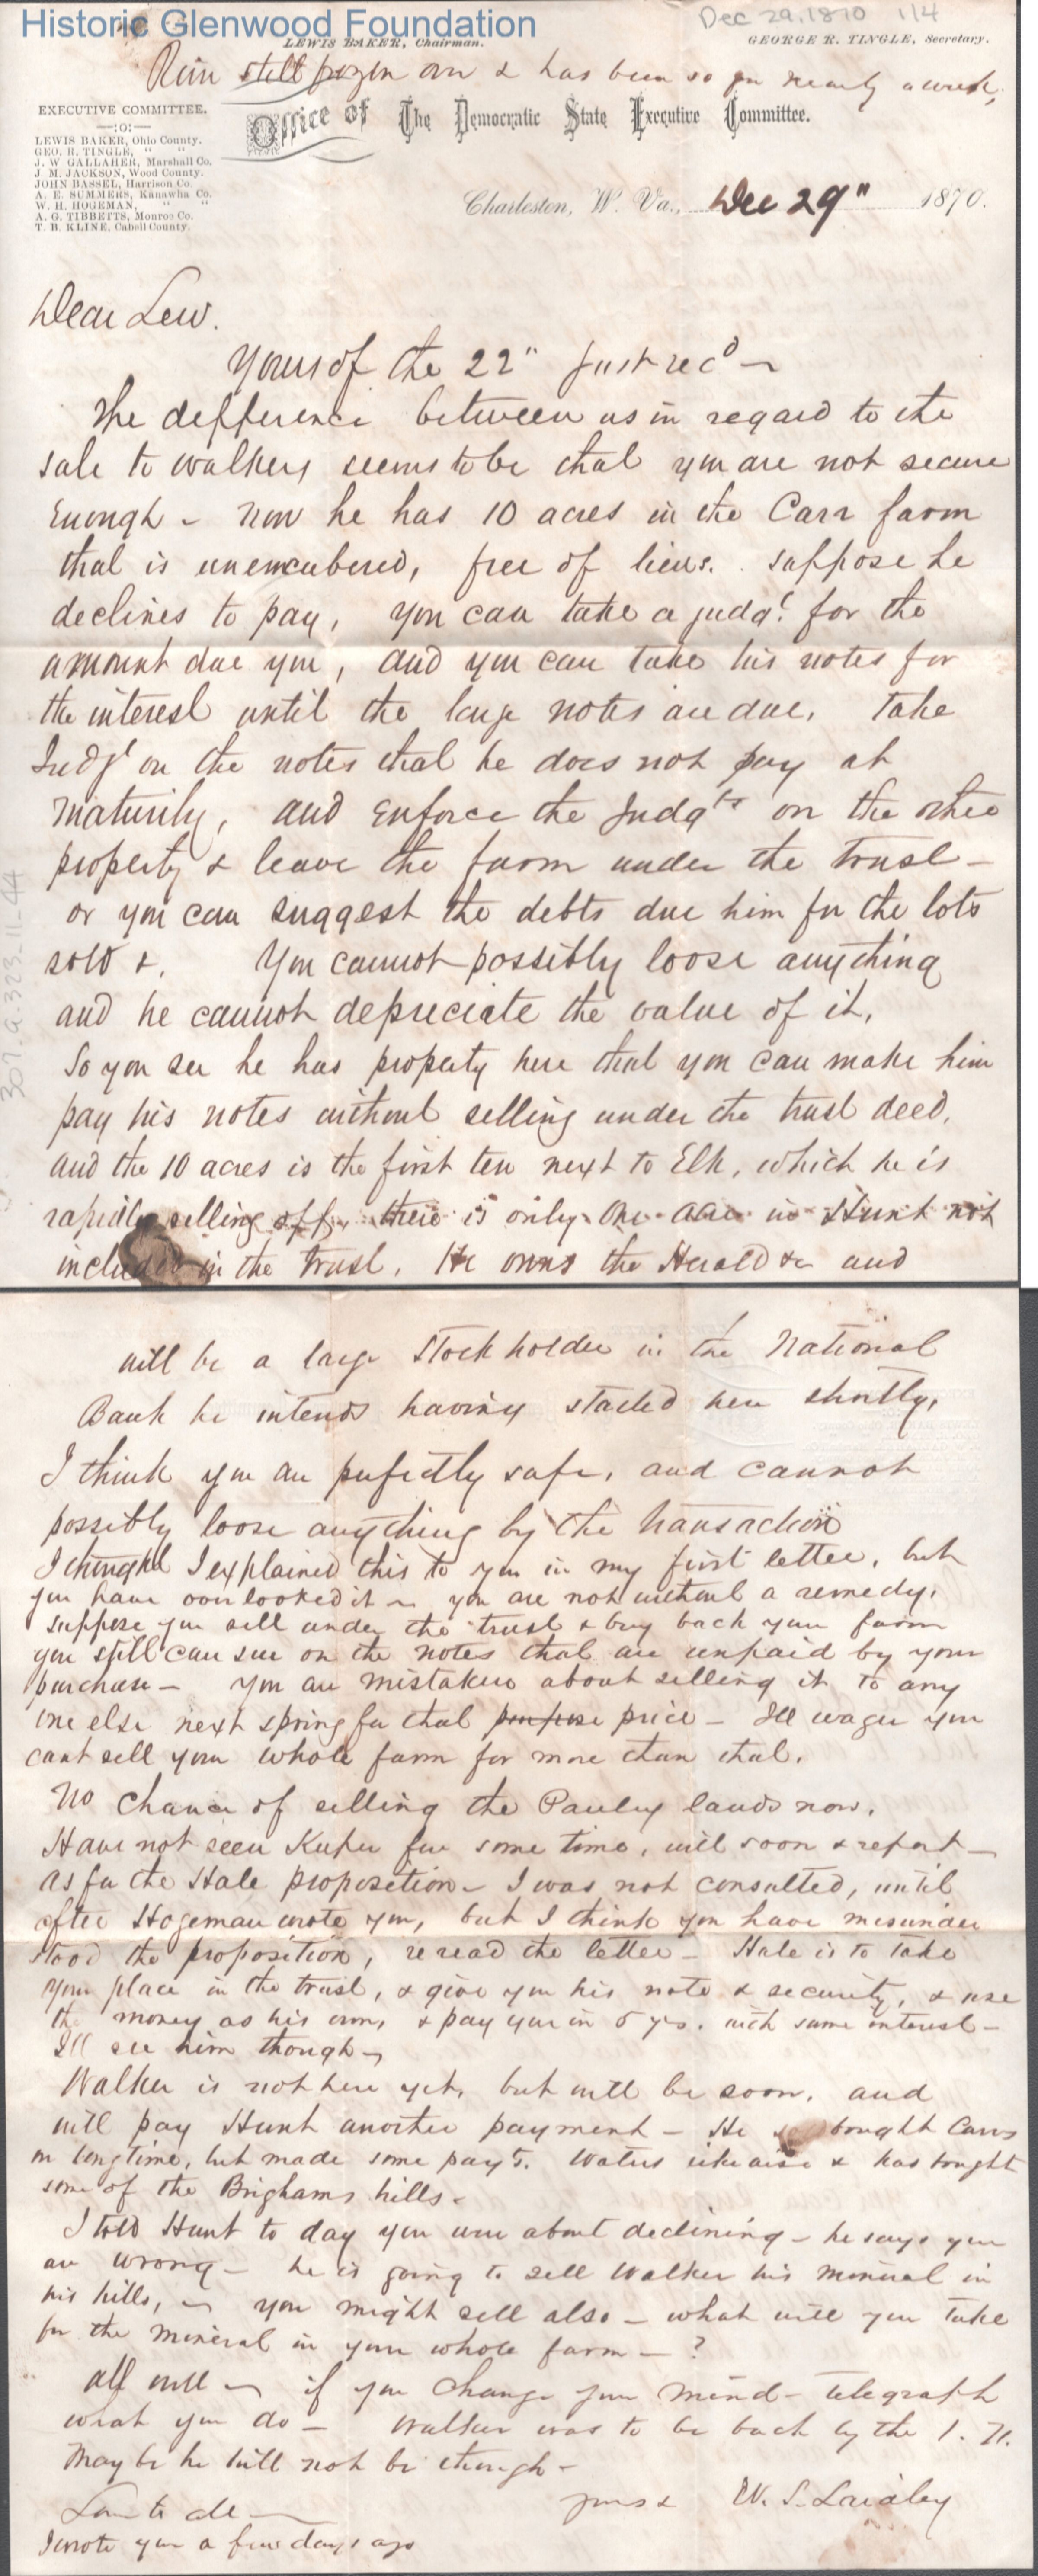 Historic Glenwood Foundation
Dec 29, 1870 114
LEWIS BAKER, Chairman.
GEORGE R. TINGLE, Secretary.
still frozen over & has been so for nearly a week,
EXECUTIVE COMMITTEE.
—:o:—
LEWIS BAKER, Ohio County.
GEO. R. TINGLE, " "
J. W. GALLAHER, Marshall Co.
J. M. JACKSON, Wood County.
JOHN BASSEL, Harrison Co.
A. E. SUMMERS, Kanawha Co.
W. H. HOGEMAN, " "
A. G. TIBBETTS, Monroe Co.
T. B. KLINE, Cabell County.
Office of The Democratic State Executive Committee.
Charleston, W. Va., Dec 29" 1870.
Dear Lew.
Yours of the 22" just recd —
The defference between us in regard to the
sale to Walkers seems to be that you are not secure
Enough – now he has 10 acres in the Carr farm
that is unemcubered, free of liens. suppose he
declines to pay, you can take a judgt for the
amount due you, and you can take his notes for
the interest until the large notes are due, take
Judgt on the notes that he does not pay at
maturity, and Enforce the Judgts on the other
property & leave the farm under the trust —
or you can suggest the debts due him for the lots
sold &. You cannot possibly loose anything
and he cannot depreciate the value of it,
So you see he has property here that you can make him
pay his notes without selling under the trust deed,
and the 10 acres is the first ten next to Elk, which he is
rapidly selling off, there is only one acre in Hunt not
included in the trust. He owns the Herald & and
will be a large Stock holder in the National
Bank he intends having started here shortly,
I think you are perfectly safe, and cannot
possibly loose anything by the transaction
I thought I explained this to you in my first letter, but
you have overlooked it — you are not without a remedy.
suppose you sell under the trust & buy back your farm
you still can sue on the notes that are unpaid by your
purchase — You are mistaken about selling it to any
one else next spring for that purpose price — Ill wager you
cant sell your whole farm for more than that.
No chance of selling the Pauley lands now.
Have not seen for some time, will soon & report —
As for the Hale proposition — I was not consulted, until
after Hogeman wrote you, but I think you have misunder
stood the proposition, re read the letter — Hale is to take
your place in the trust, & give you his note & security, & use
the money as his own, & pay you in 5 yrs. with same interest —
Ill see him though —
Walker is not here yet, but will be soon, and
will pay Hunt another payment — He bought Carrs
on long time, but made some payts. likewise & has bought
some of the Brighams hills.
I told Hunt to day you were about declining — he says you
are wrong — he is going to sell Walker his mineral in
his hills, — you might sell also — what will you take
for the mineral in your whole farm — ?
All well — if you change your mind — telegraph
what you do — Walker was to be back by the 1.
May be he will not be though —
Love to all — yours & W. S. Laidley
I wrote you a few days ago
307.a.323.11-44